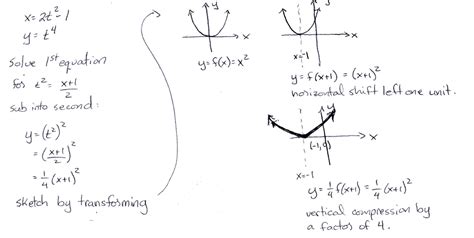 x = 2t² - 1
y = t⁴
solve 1st equation
for t² = (x+1)/2
sub into second:
y = (t²)²
= ((x+1)/2)²
= 1/4 (x+1)²
sketch by transforming
y
x
y = f(x) = x²
y
x
x=-1
y = f(x+1) = (x+1)²
horizontal shift left one unit.
y
x
(-1,0)
x=-1
y = 1/4 f(x+1) = 1/4 (x+1)²
vertical compression by
a factor of 4.